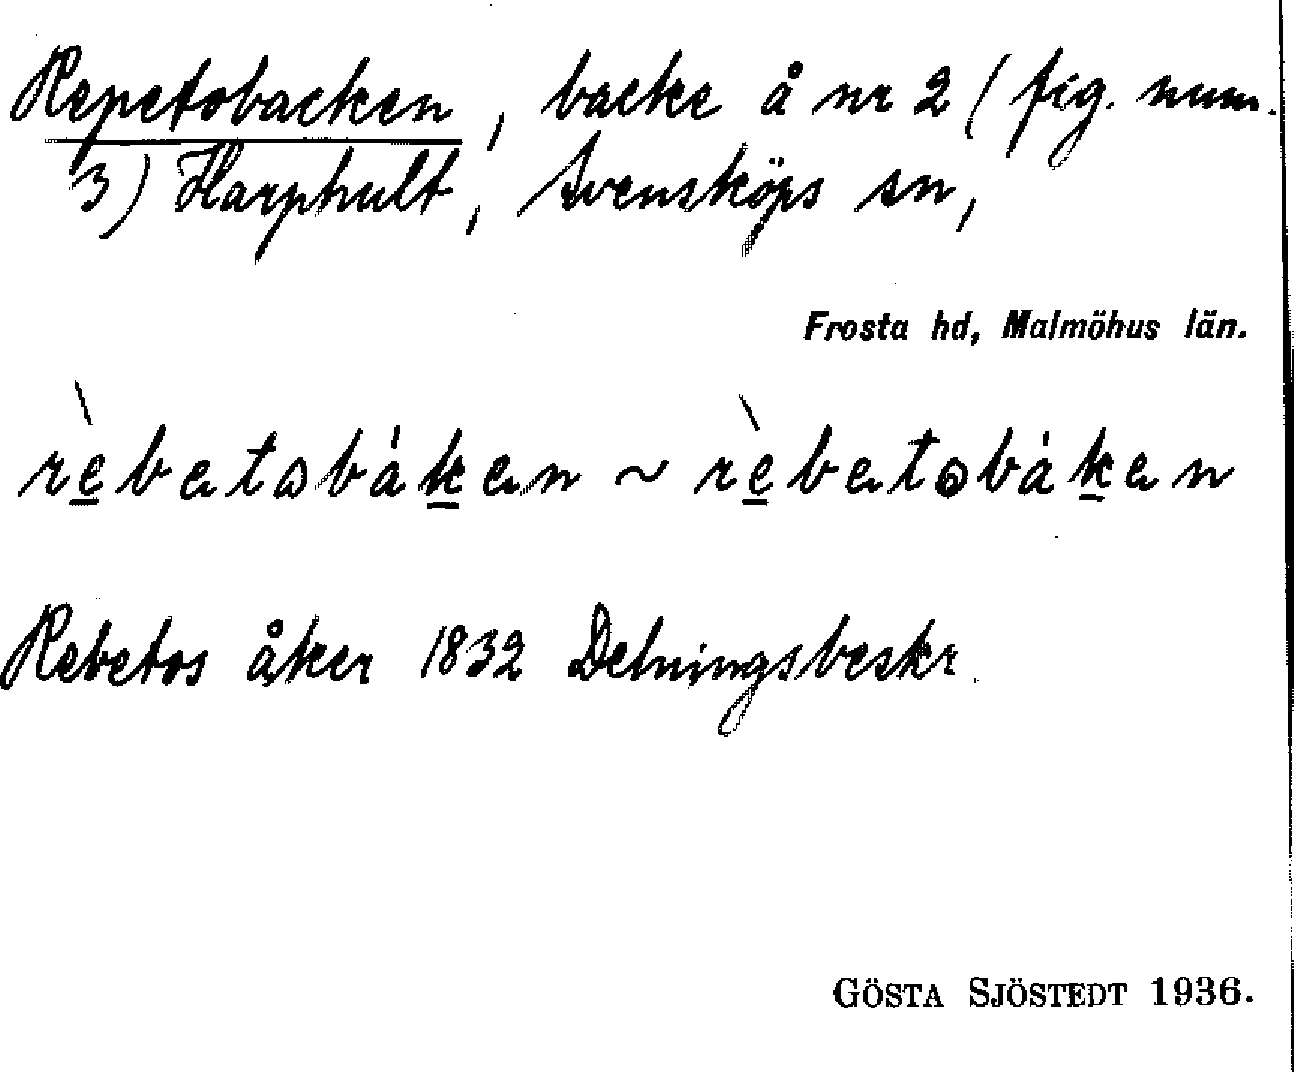 Repetobacken, backe å nr 2 (fig. num.
3) Harphult, Svensköps sn,
Frosta hd, Malmöhus län.
rèbatobákan ~ rèbatobákan
Rebetos åker 1832 Delningsbeskr.
GÖSTA SJÖSTEDT 1936.